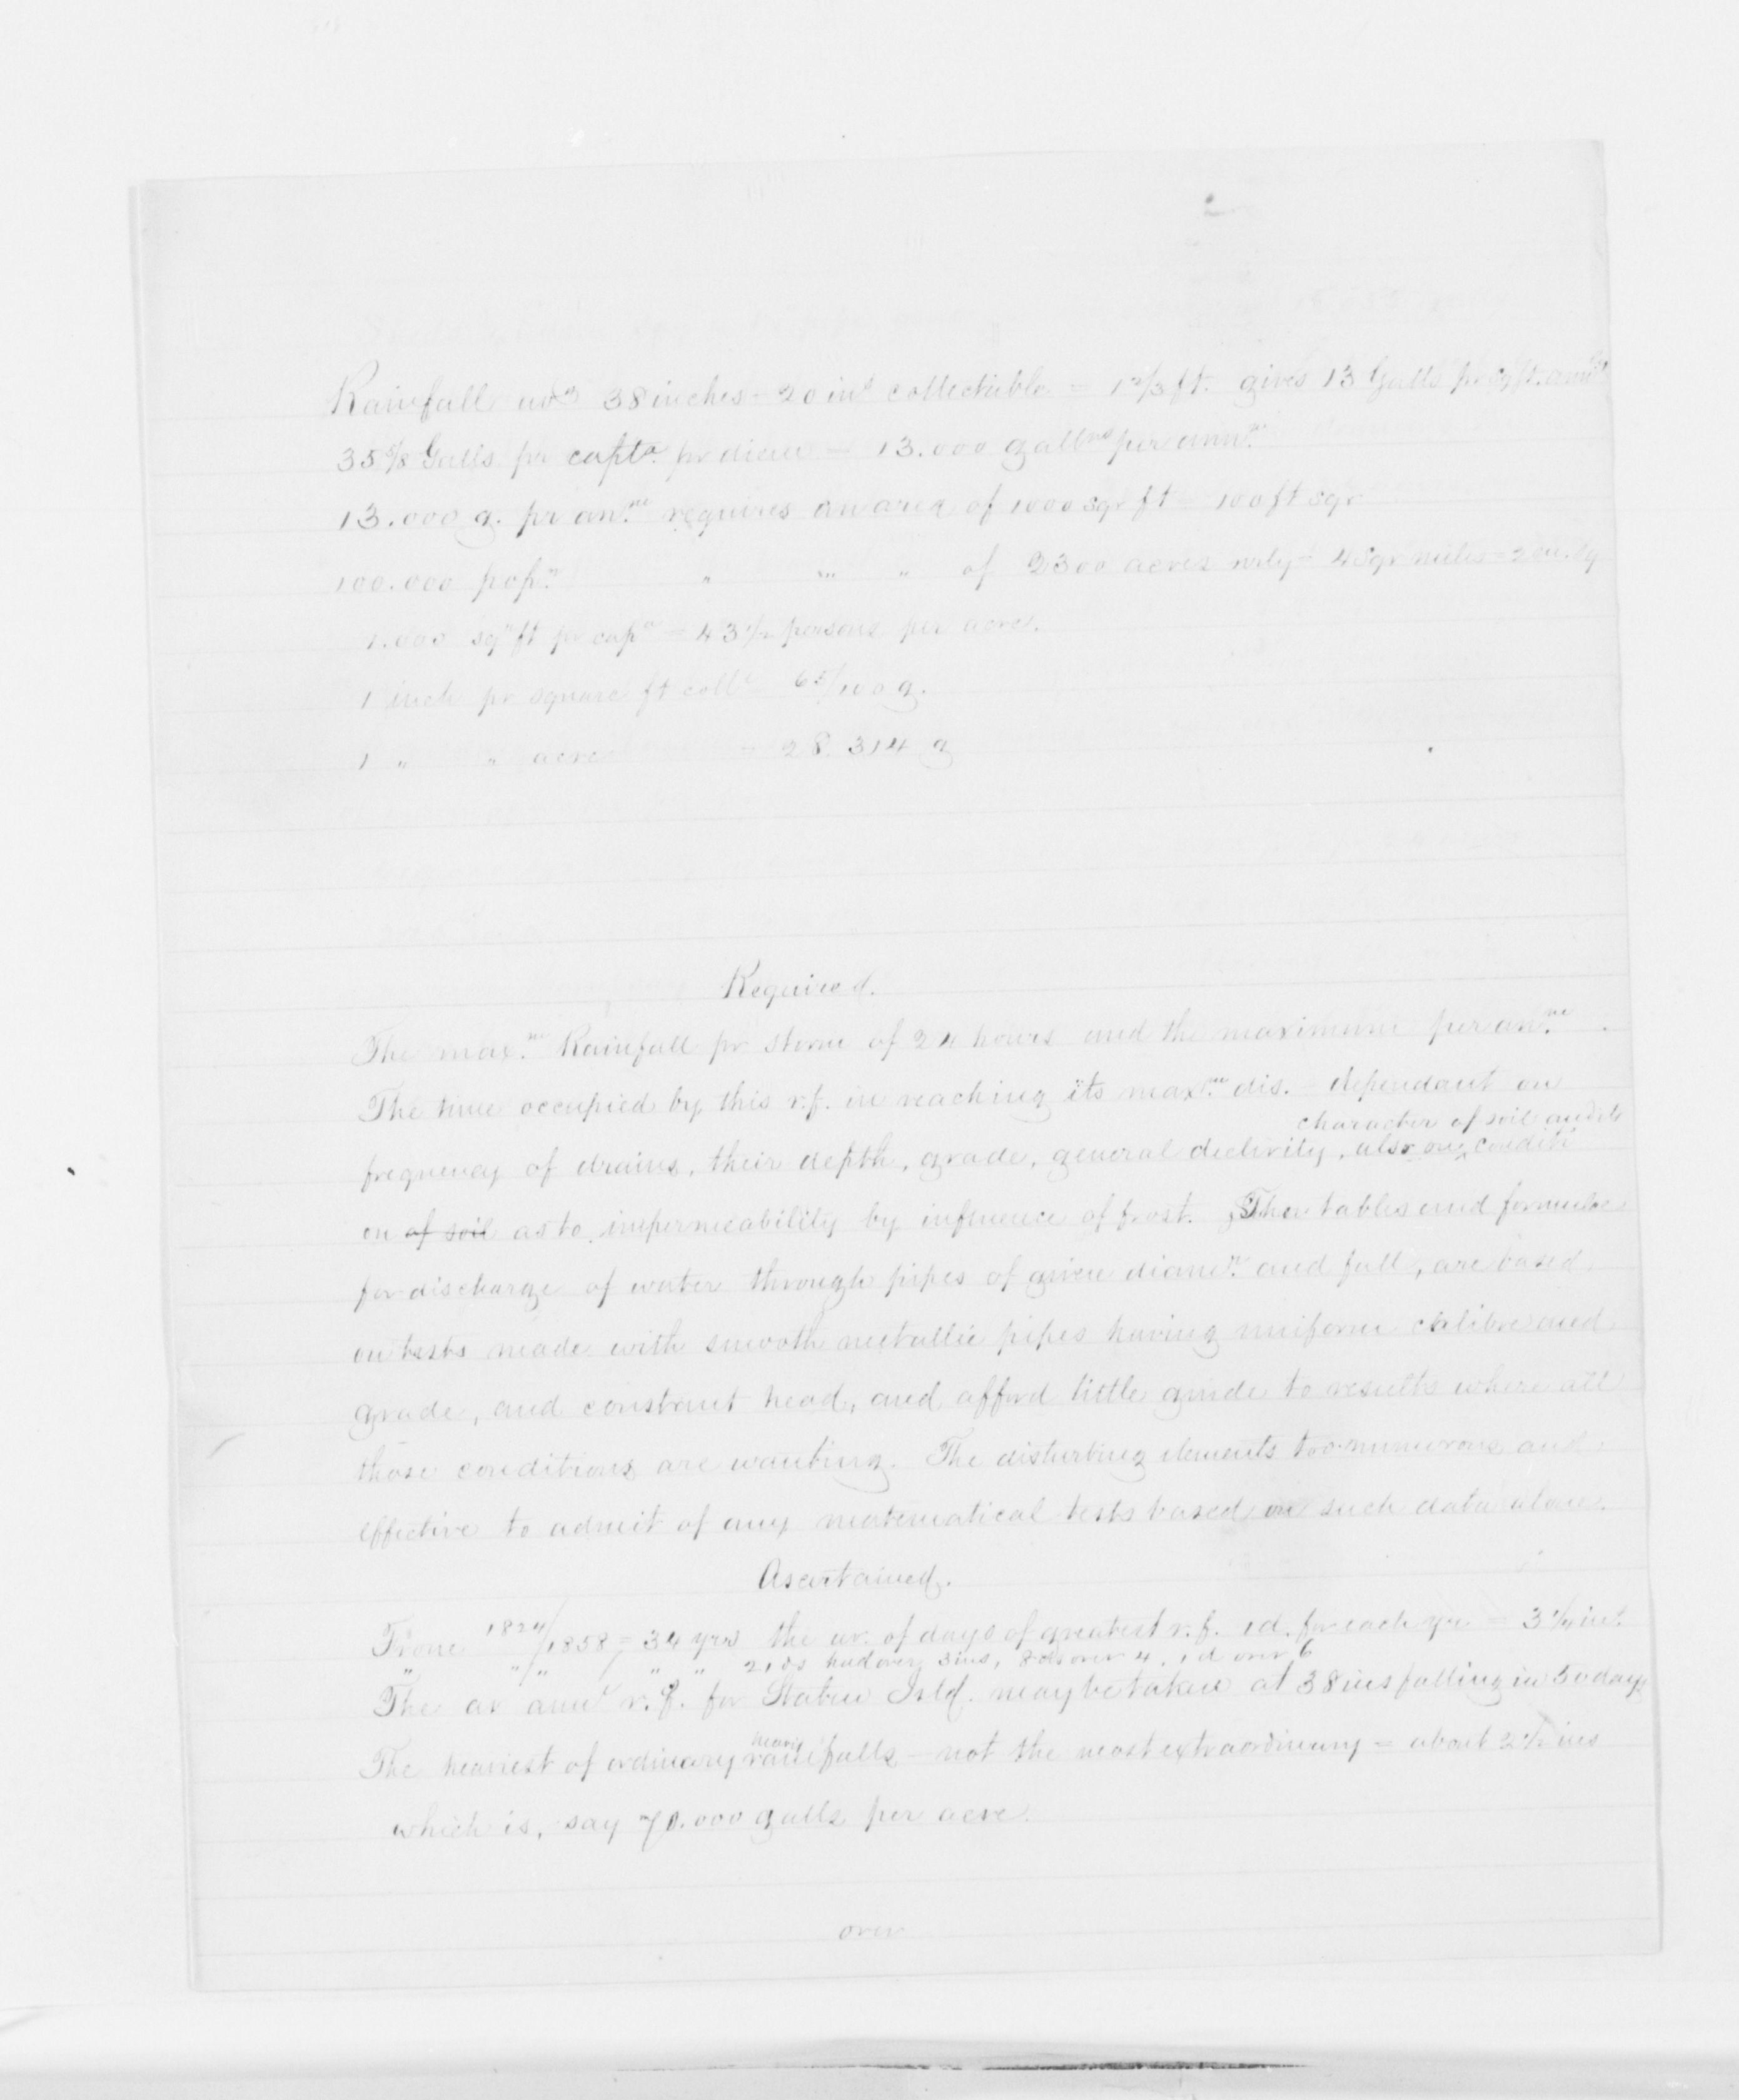 2
Rainfall 38 inches - 20 ins collectable = 1 2/3 ft. gives 13 Galls pr sq ft. ann
35 5/8 Galls pr capta. pr diem = 13.000 gallns per annm
13.000 g. pr an.m requires an area of 1000 sqr ft 100 ft sqr
100.000 pop.n " " " of 2300 acres nrly = 4 Sqr miles = 2
1.000 sqr ft pr capa = 43 1/2 persons per acre.
1 inch pr square ft coll 65/100 g.
1 " " acre = 28.314 g
Required.
The max.m Rainfall pr storm of 24 hours and the maximum per an.m
The time occupied by this r.f. in reaching its max.m dis. - dependant on
character of soil and its
frequency of drains, their depth, grade, general declivity, also on conditi
on of soil as to impermeability by influence of frost. The tables and formulae
for discharge of water through pipes of given diamr. and fall, are based
on tests made with smooth metallic pipes having uniform calibre and
grade, and constant head, and afford little guide to results where all
those conditions are wanting. The disturbing elements too numerous and
effective to admit of any matematical tests based on such data alone.
Ascertained.
From 1824/1858 = 34 yrs the av. of days of greatest r.f. 1d. for each yr = 3 1/4 ins.
" "/" " " 21 ds had over 3 ins, 8 ds over 4, 1 d over 6
The av annl r.f. for Staten Isld. may be taken at 38 ins falling in 50 days
heavy
The heaviest of ordinary rainfalls - not the most extraordinary = about 2 1/2 ins
which is, say 70.000 galls per acre.
over